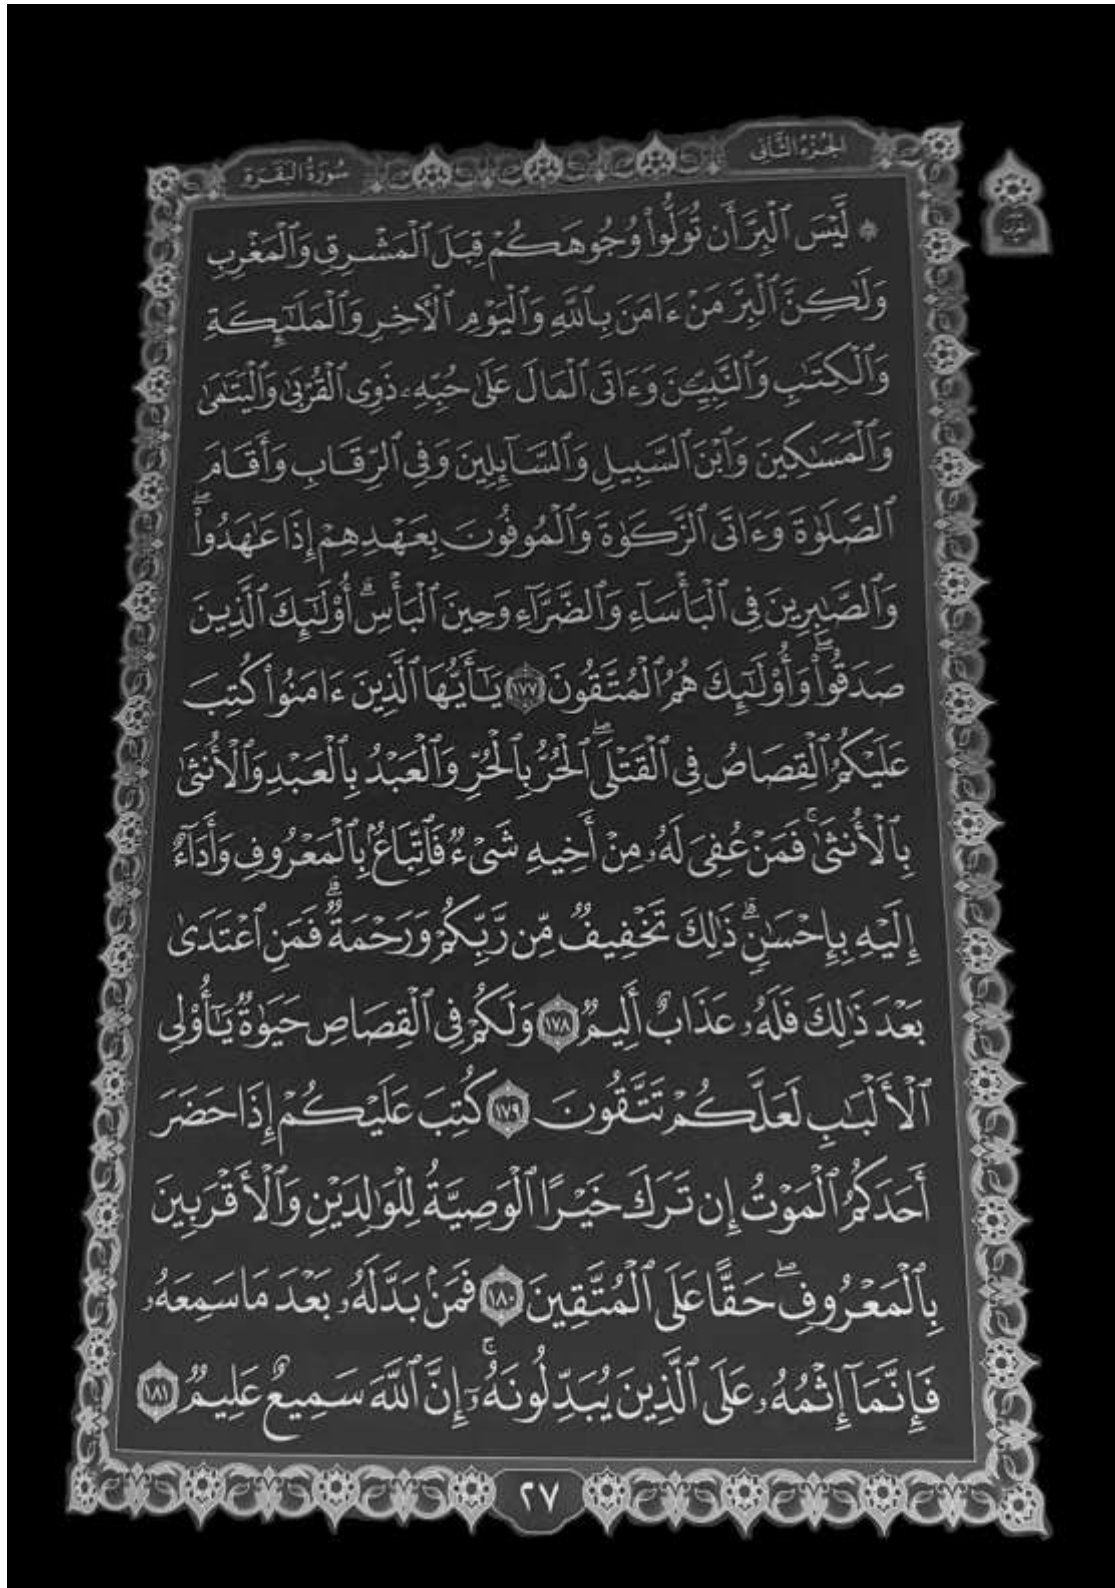 الجُزْءُ الثَّانِي
سُورَةُ البَقَرَةِ
۞ لَّيْسَ ٱلْبِرَّ أَن تُوَلُّوا۟ وُجُوهَكُمْ قِبَلَ ٱلْمَشْرِقِ وَٱلْمَغْرِبِ
وَلَٰكِنَّ ٱلْبِرَّ مَنْ ءَامَنَ بِٱللَّهِ وَٱلْيَوْمِ ٱلْأَخِرِ وَٱلْمَلَٰٓئِكَةِ
وَٱلْكِتَٰبِ وَٱلنَّبِيِّۦنَ وَءَاتَى ٱلْمَالَ عَلَىٰ حُبِّهِۦ ذَوِى ٱلْقُرْبَىٰ وَٱلْيَتَٰمَىٰ
وَٱلْمَسَٰكِينَ وَٱبْنَ ٱلسَّبِيلِ وَٱلسَّآئِلِينَ وَفِى ٱلرِّقَابِ وَأَقَامَ
ٱلصَّلَوٰةَ وَءَاتَى ٱلزَّكَوٰةَ وَٱلْمُوفُونَ بِعَهْدِهِمْ إِذَا عَٰهَدُوا۟ ۖ
وَٱلصَّٰبِرِينَ فِى ٱلْبَأْسَآءِ وَٱلضَّرَّآءِ وَحِينَ ٱلْبَأْسِ ۗ أُو۟لَٰٓئِكَ ٱلَّذِينَ
صَدَقُوا۟ ۖ وَأُو۟لَٰٓئِكَ هُمُ ٱلْمُتَّقُونَ ١٧٧ يَٰٓأَيُّهَا ٱلَّذِينَ ءَامَنُوا۟ كُتِبَ
عَلَيْكُمُ ٱلْقِصَاصُ فِى ٱلْقَتْلَى ۖ ٱلْحُرُّ بِٱلْحُرِّ وَٱلْعَبْدُ بِٱلْعَبْدِ وَٱلْأُنثَىٰ
بِٱلْأُنثَىٰ ۚ فَمَنْ عُفِىَ لَهُۥ مِنْ أَخِيهِ شَىْءٌ فَٱتِّبَاعٌۢ بِٱلْمَعْرُوفِ وَأَدَآءٌ
إِلَيْهِ بِإِحْسَٰنٍ ۗ ذَٰلِكَ تَخْفِيفٌ مِّن رَّبِّكُمْ وَرَحْمَةٌ ۗ فَمَنِ ٱعْتَدَىٰ
بَعْدَ ذَٰلِكَ فَلَهُۥ عَذَابٌ أَلِيمٌ ١٧٨ وَلَكُمْ فِى ٱلْقِصَاصِ حَيَوٰةٌ يَٰٓأُو۟لِى
ٱلْأَلْبَٰبِ لَعَلَّكُمْ تَتَّقُونَ ١٧٩ كُتِبَ عَلَيْكُمْ إِذَا حَضَرَ
أَحَدَكُمُ ٱلْمَوْتُ إِن تَرَكَ خَيْرًا ٱلْوَصِيَّةُ لِلْوَٰلِدَيْنِ وَٱلْأَقْرَبِينَ
بِٱلْمَعْرُوفِ ۖ حَقًّا عَلَى ٱلْمُتَّقِينَ ١٨٠ فَمَنۢ بَدَّلَهُۥ بَعْدَ مَا سَمِعَهُۥ
فَإِنَّمَآ إِثْمُهُۥ عَلَى ٱلَّذِينَ يُبَدِّلُونَهُۥٓ ۚ إِنَّ ٱللَّهَ سَمِيعٌ عَلِيمٌ ١٨١
٢٧